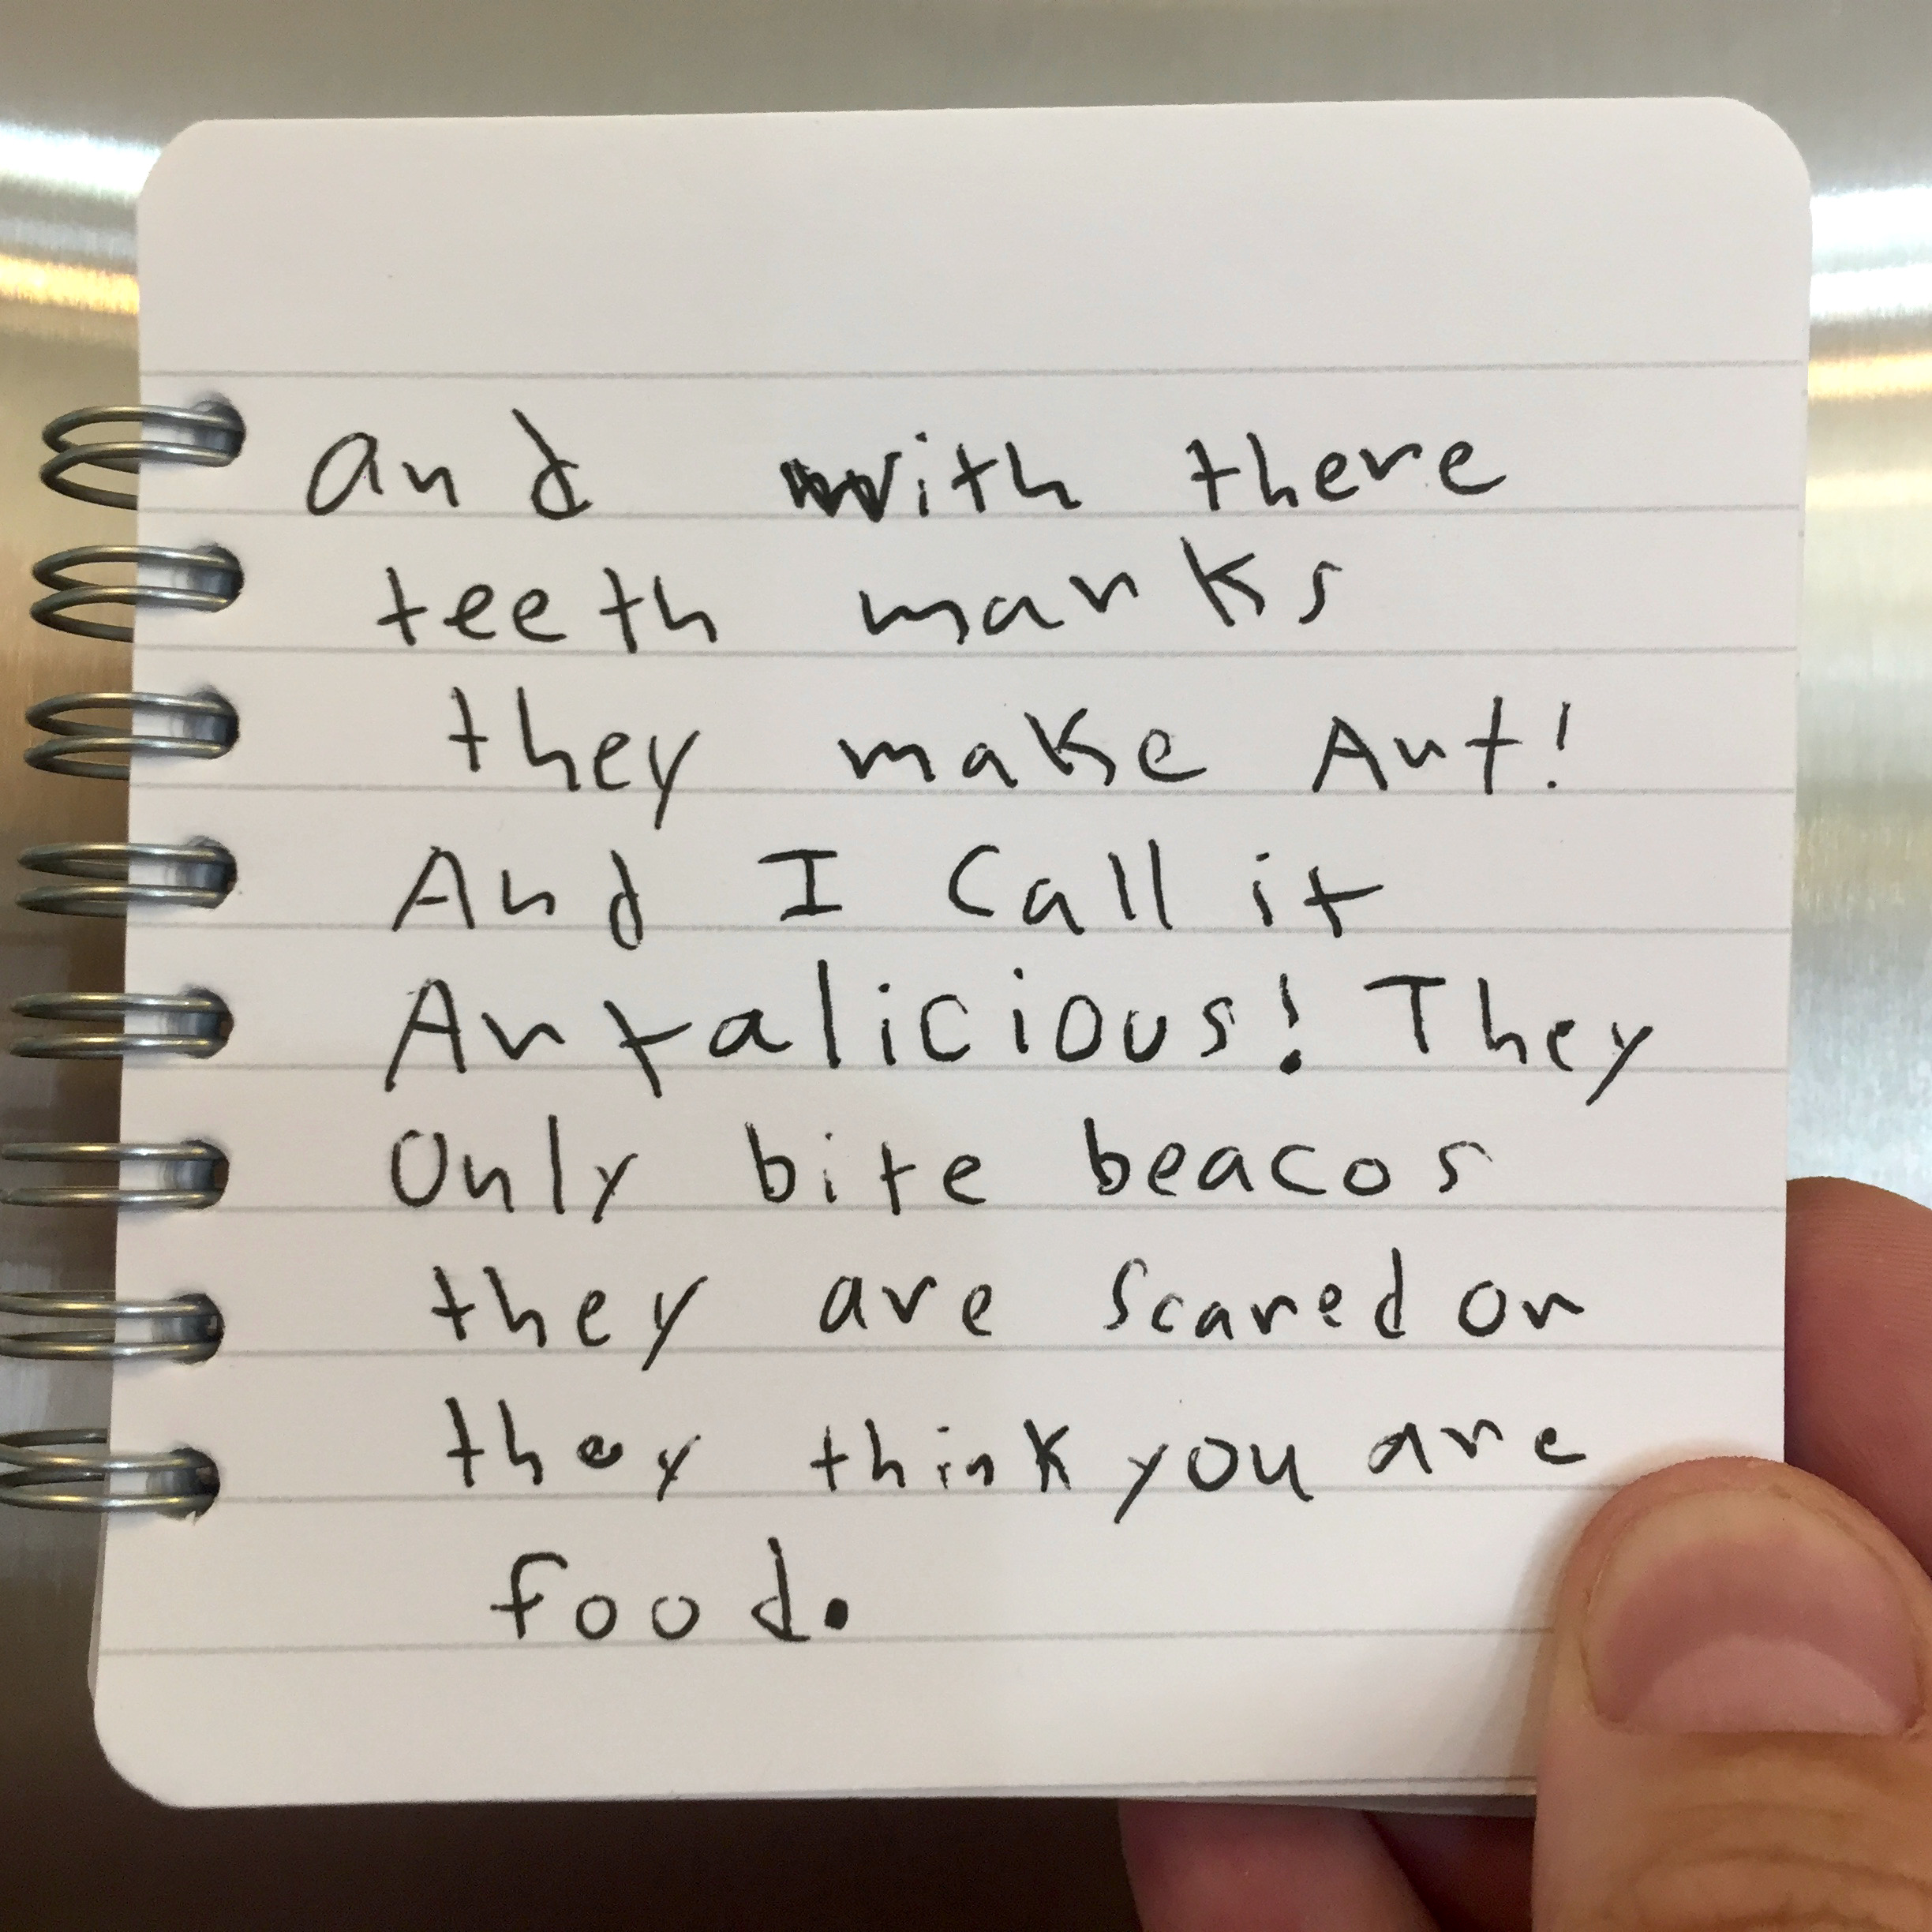 and with there
teeth marks
they make Art!
And I Call it
Artalicious! They
Only bite beacos
they are scared or
they think you are
food.